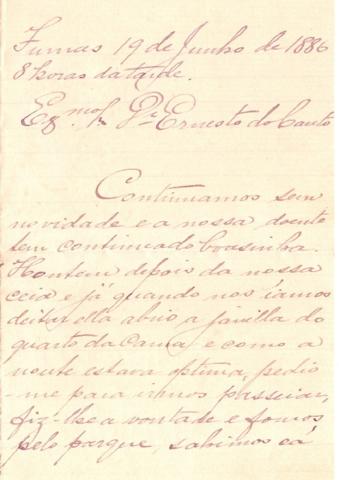 Furnas 19 de Junho de 1886
8 horas da tarde.
Ex.mo Sr. Dr. Ernesto do Canto
Continuamos sem
novidade e a nossa doente
tem continuado boasinha.
Hontem depois da nossa
ceia e já quando nos iamos
deitar ella abrio a janella do
quarto da cama e como a
noute estava optima, pedio
-me para irmos passeiar,
fiz-lhe a vontade e fomos
pelo parque, sahimos cá